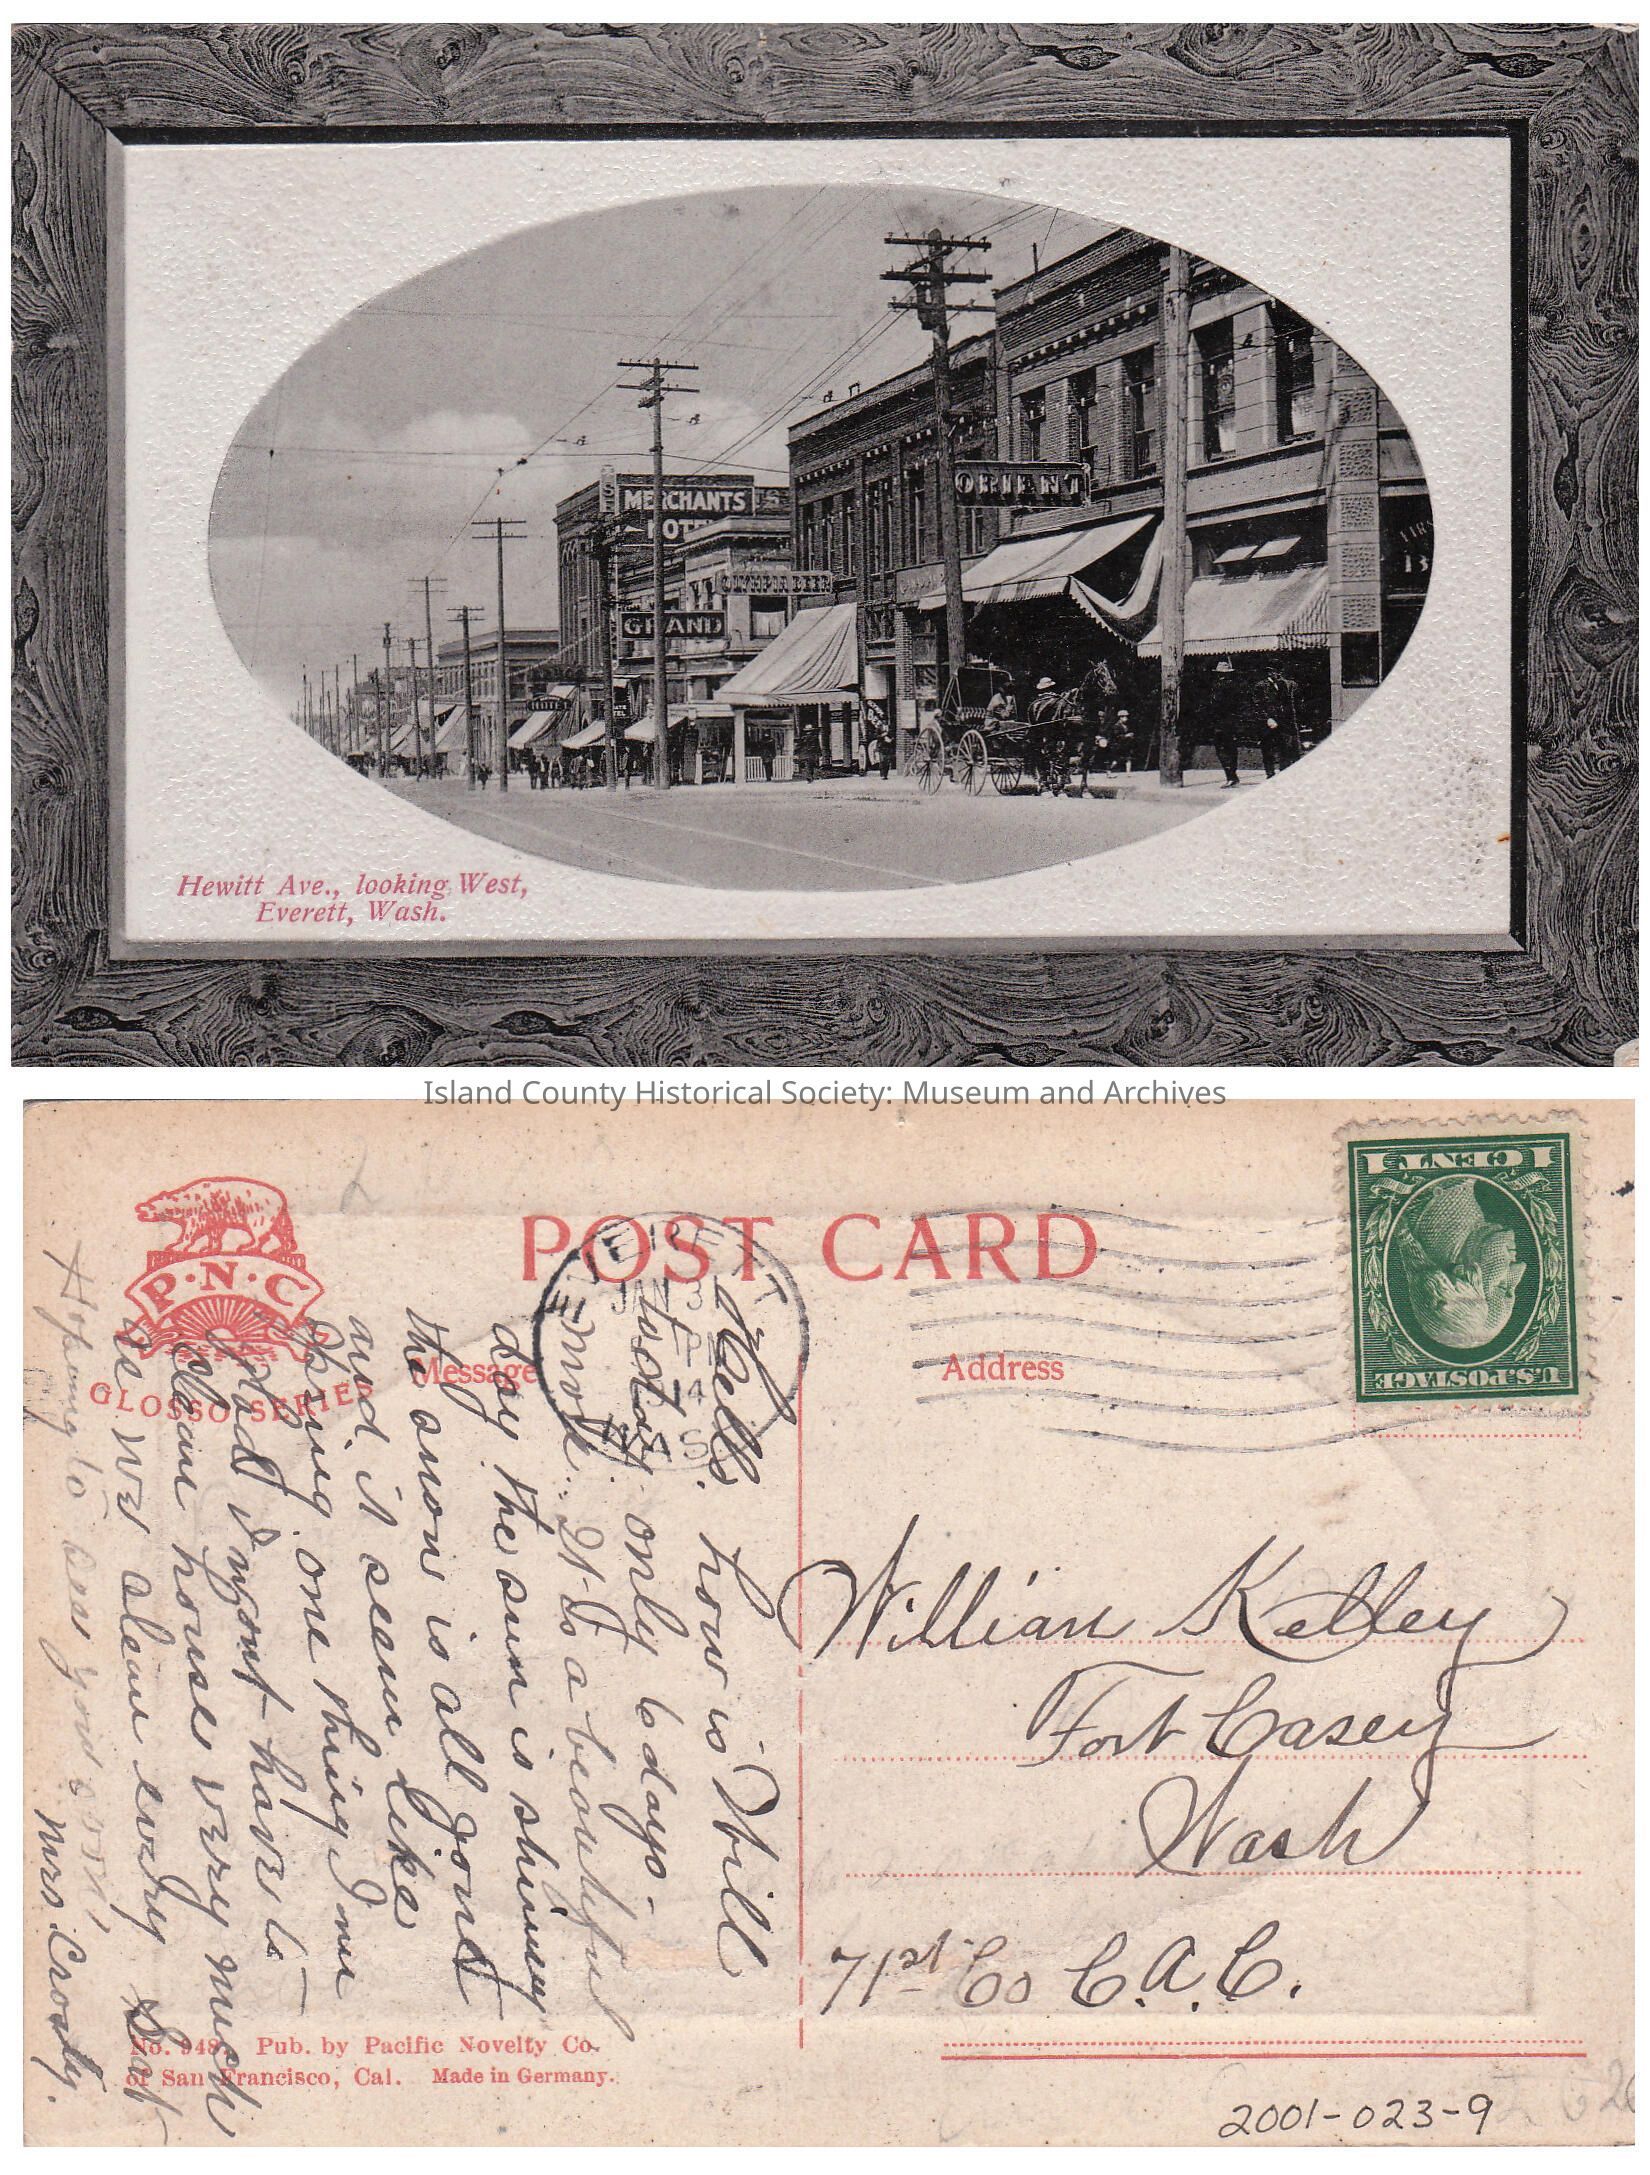 MERCHANTS
HOTEL
OLYMPIA BEER
GRAND
HOTEL
ORIENT
13
Hewitt Ave., looking West,
Everett, Wash.
Island County Historical Society: Museum and Archives
POST CARD
P·N·C
GLOSSO SERIES
Message
Address
EVERETT
JAN 3
P
14
WAS
1 CENT 1
U.S. POSTAGE
Well. how is Bill
today only 6 days.
more. It is a beautiful
day the sun is shining
the snow is all gone
and it seem like
Spring one thing I me
glad I wont have to
clean house very much
as we clean every Sat
Hoping to see you soon,
Mrs Crosby.
William Kelley
Fort Casey
Wash
71st Co C.A.C.
No. 948 Pub. by Pacific Novelty Co.
of San Francisco, Cal. Made in Germany.
2001-023-9